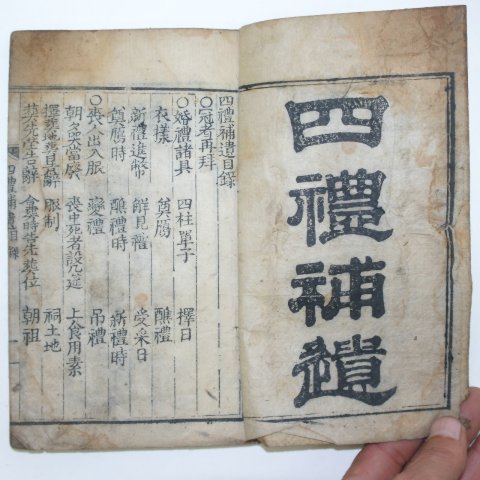 四禮補遺
四禮補遺目錄
○冠者再拜
○婚禮諸具 四柱單子 擇日
衣樣 奠鴈 醮禮
新禮進幣 餠見禮 受采日
奠鴈時 醮禮時 新禮時
○喪人出入服 變禮 吊禮
朝夕哭當廢 喪中死者設几筵 上食用素
服制 祠土地
朝祖
四禮補遺目錄